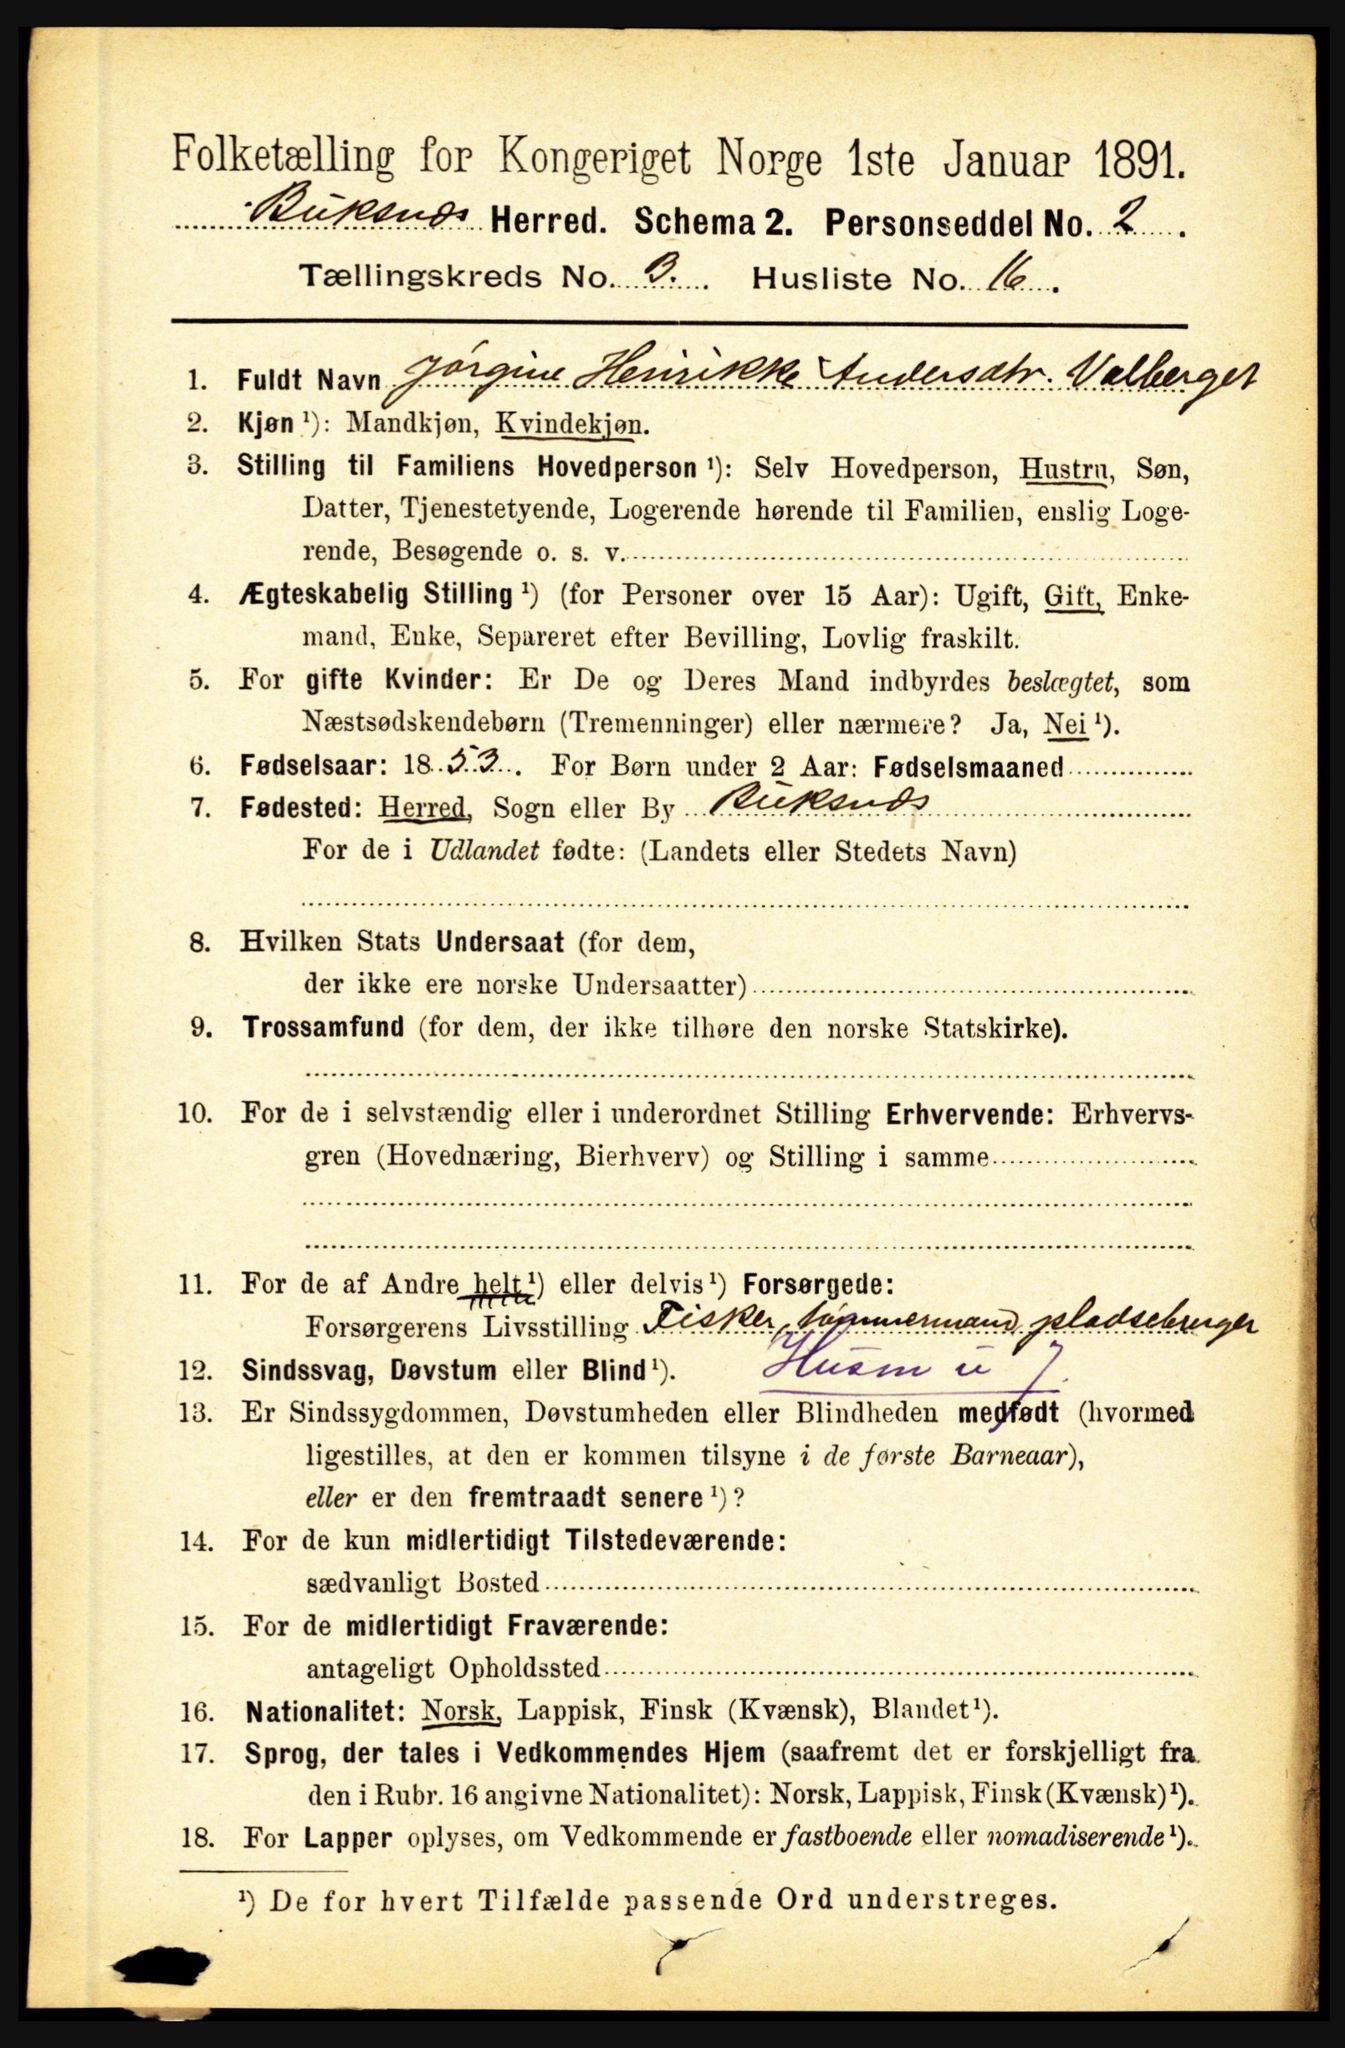 Folketælling for Kongeriget Norge 1ste Januar 1891.
Buksnæs Herred. Schema 2. Personseddel No. 2.
Tællingskreds No. 3. Husliste No. 16.
1. Fuldt Navn Jørgine Henrikke Andersdtr. Valberget
2. Kjøn ¹): Mandkjøn, Kvindekjøn.
3. Stilling til Familiens Hovedperson ¹): Selv Hovedperson, Hustru, Søn,
Datter, Tjenestetyende, Logerende hørende til Familien, enslig Loge-
rende, Besøgende o. s. v.
4. Ægteskabelig Stilling ¹) (for Personer over 15 Aar): Ugift, Gift, Enke-
mand, Enke, Separeret efter Bevilling, Lovlig fraskilt.
5. For gifte Kvinder: Er De og Deres Mand indbyrdes beslægtet, som
Næstsødskendebørn (Tremenninger) eller nærmere? Ja, Nei ¹).
6. Fødselsaar: 1853. For Børn under 2 Aar: Fødselsmaaned
7. Fødested: Herred, Sogn eller By Buksnæs
For de i Udlandet fødte: (Landets eller Stedets Navn)
8. Hvilken Stats Undersaat (for dem,
der ikke ere norske Undersaatter)
9. Trossamfund (for dem, der ikke tilhøre den norske Statskirke).
10. For de i selvstændig eller i underordnet Stilling Erhvervende: Erhvervs-
gren (Hovednæring, Bierhverv) og Stilling i samme
11. For de af Andre helt ¹) eller delvis ¹) Forsørgede:
Forsørgerens Livsstilling Fisker, tømmermand, pladsebruger
12. Sindssvag, Døvstum eller Blind ¹). Husm u J.
13. Er Sindssygdommen, Døvstumheden eller Blindheden medfødt (hvormed
ligestilles, at den er kommen tilsyne i de første Barneaar),
eller er den fremtraadt senere ¹)?
14. For de kun midlertidigt Tilstedeværende:
sædvanligt Bosted
15. For de midlertidigt Fraværende:
antageligt Opholdssted
16. Nationalitet: Norsk, Lappisk, Finsk (Kvænsk), Blandet ¹).
17. Sprog, der tales i Vedkommendes Hjem (saafremt det er forskjelligt fra
den i Rubr. 16 angivne Nationalitet): Norsk, Lappisk, Finsk (Kvænsk) ¹).
18. For Lapper oplyses, om Vedkommende er fastboende eller nomadiserende ¹).
¹) De for hvert Tilfælde passende Ord understreges.